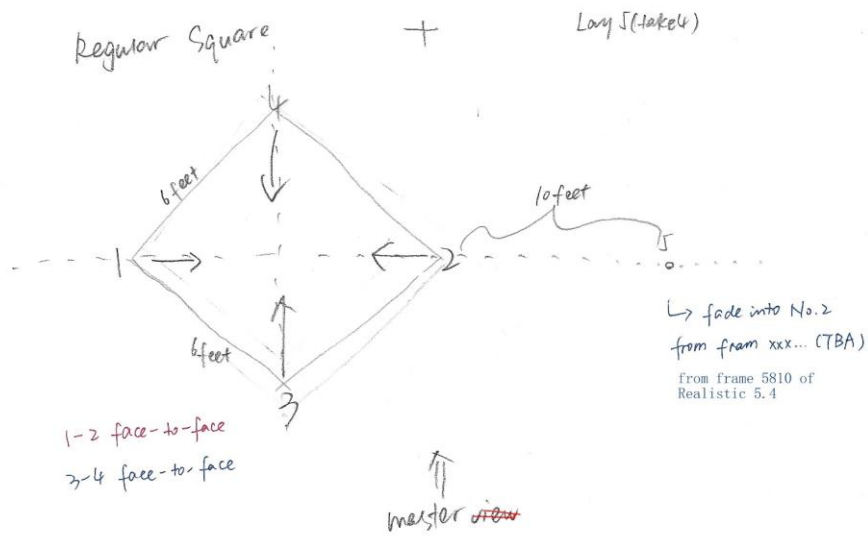 Regular Square
+
Lay 5 (take 4)
4
6 feet
10 feet
5
1
2
6 feet
3
↳ fade into No.2
from fram xxx... (TBA)
from frame 5810 of
Realistic 5.4
1-2 face-to-face
3-4 face-to-face
master view